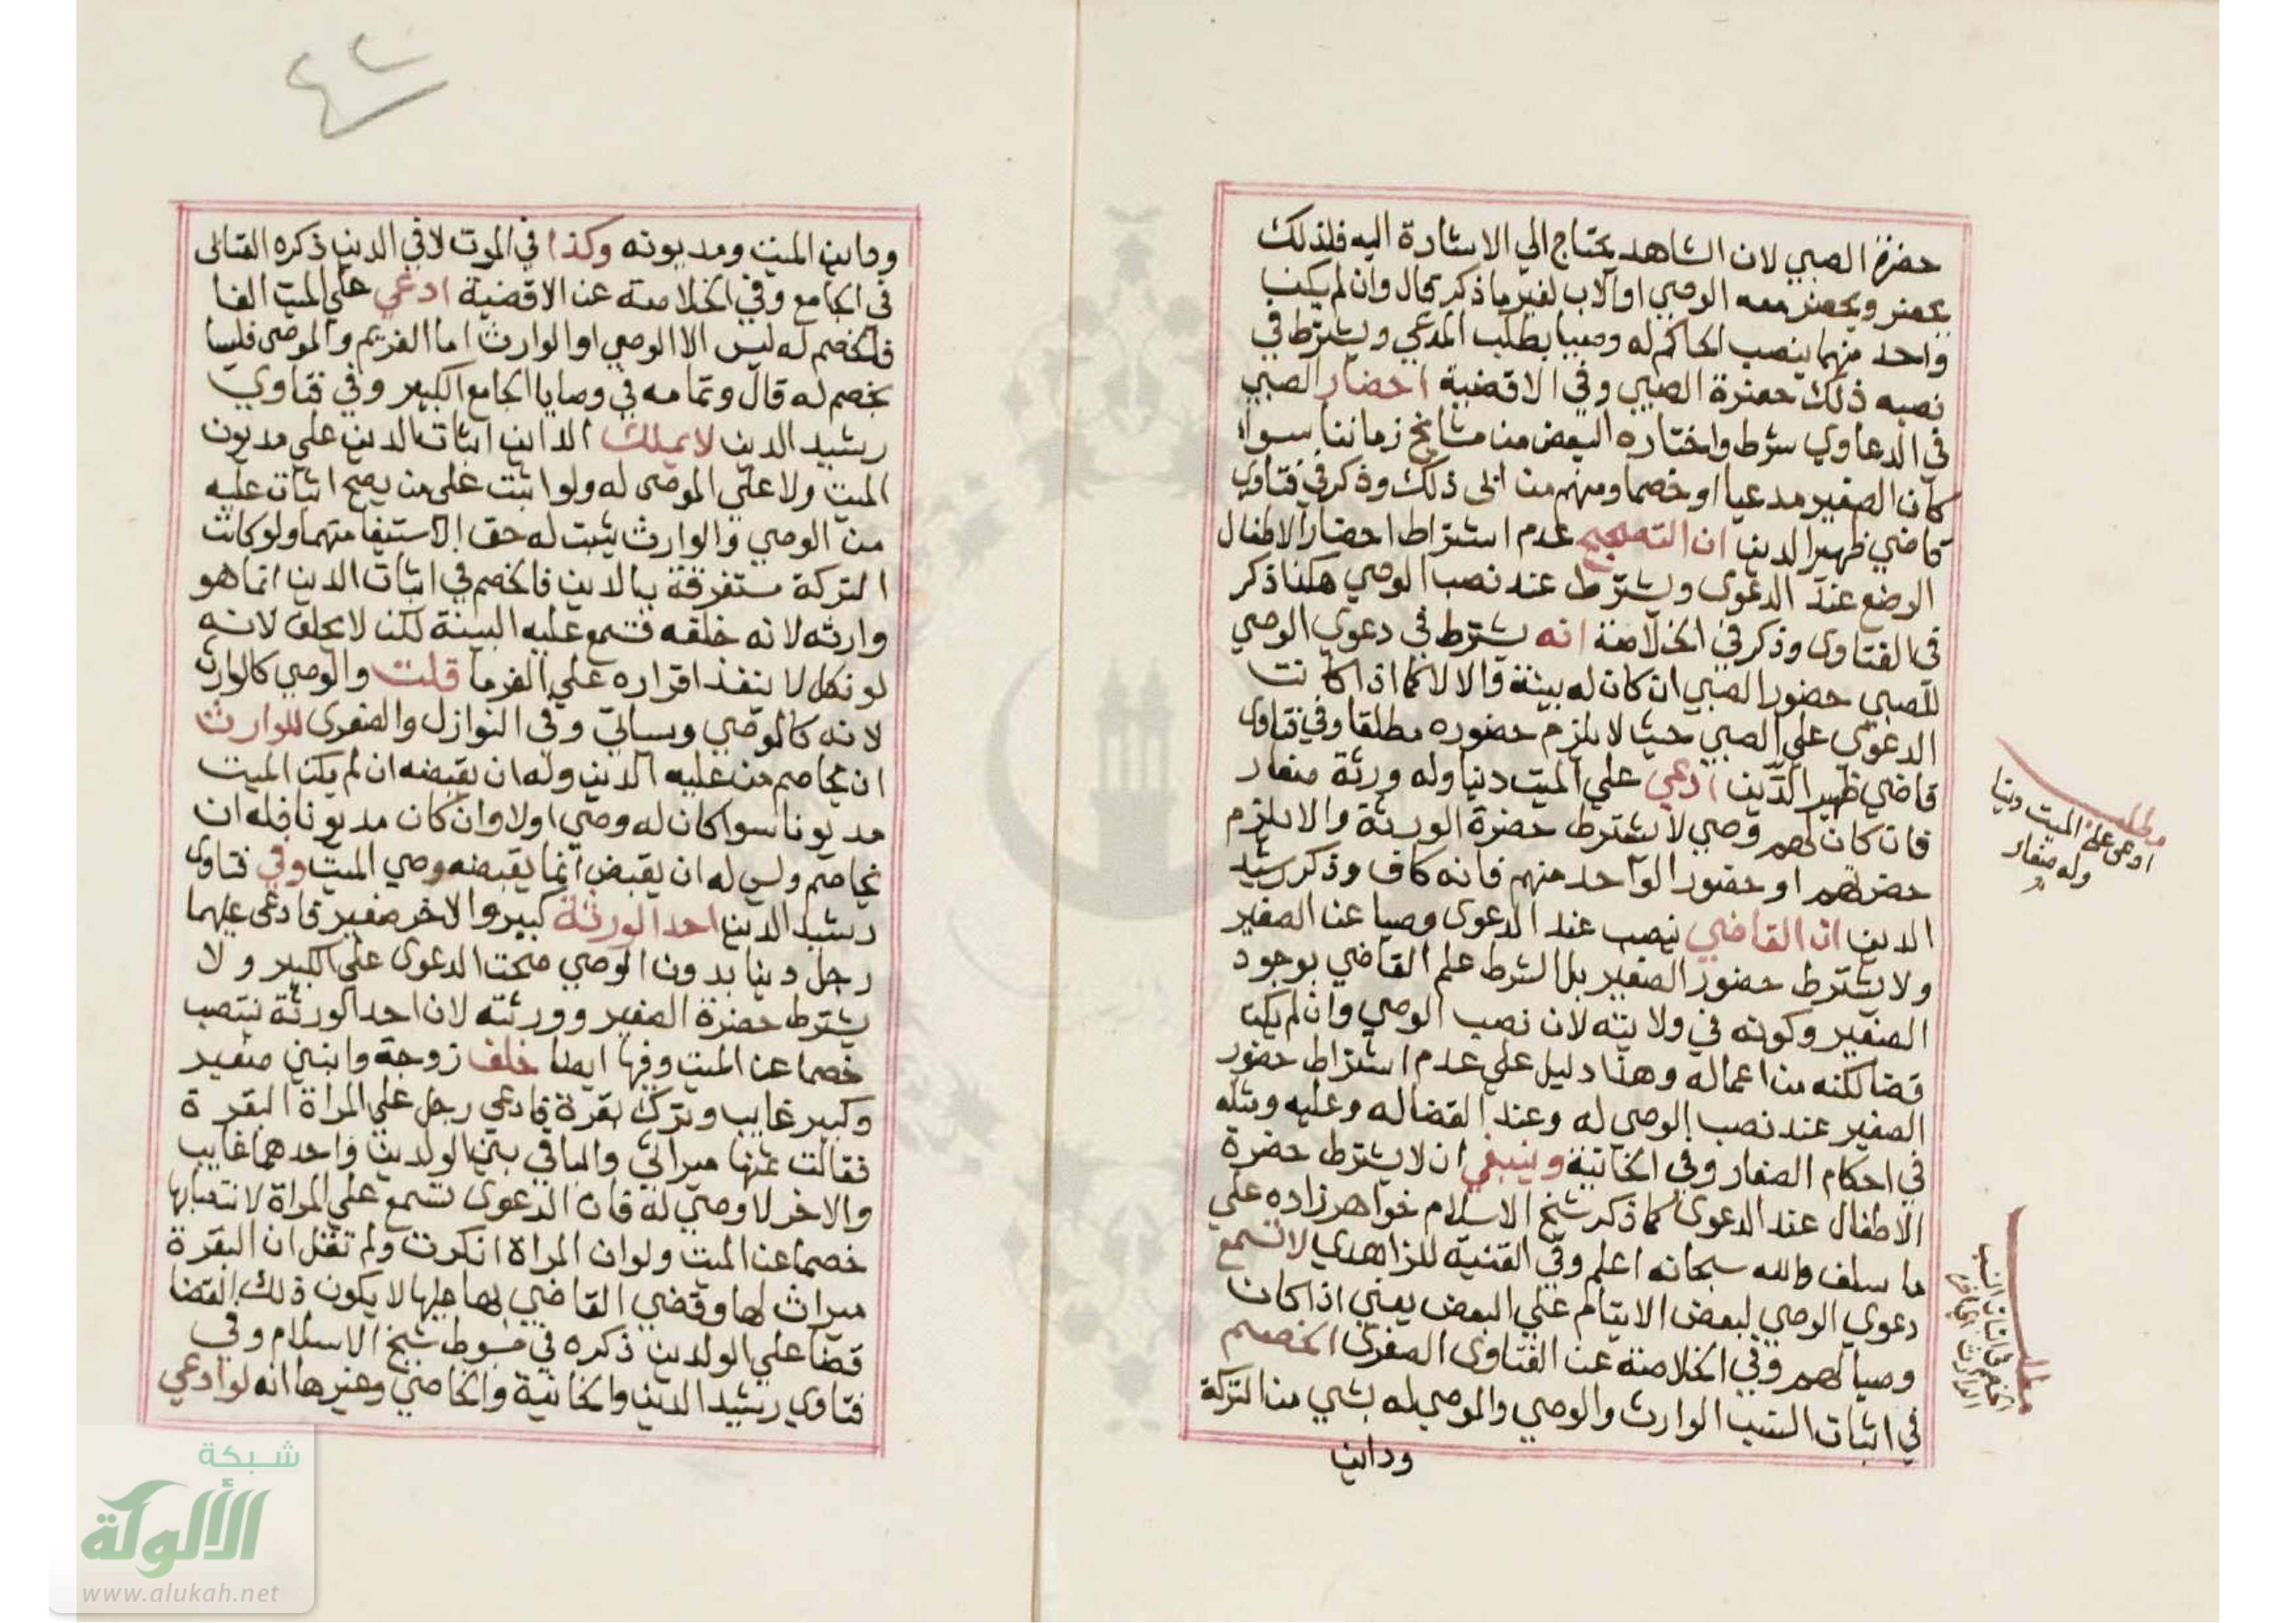 حضرة الصبي لان الشاهد يحتاج الي الاشارة اليه فلذلك
يحضر ويحضر معه الوصي او الاب لغير ما ذكر قال وان لم يكن
واحد منهما ينصب الحاكم له وصيا بطلب المدعي ويشترط في
نصبه ذلك حضرة الصبي وفي الاقضية احضار الصبي
في الدعاوي شرط واختاره البعض من مشايخ زماننا سواء
كان الصغير مدعيا او خصما ومنهم من ابى ذلك وذكر في فتاوي
قاضي ظهير الدين ان الصحيح عدم اشتراط احضار الاطفال
الرضع عند الدعوى ويشترط عند نصب الوصي هكذا ذكر
في الفتاوى وذكر في الخلاصة انه يشترط في دعوي الوصي
للصبي حضور الصبي ان كان له بينة والا لا كما اذا كانت
الدعوي علي الصبي حيث لا يلزم حضوره مطلقا وفي فتاوى
قاضي ظهير الدين ادعي علي الميت دينا وله ورثة صغار
فان كان لهم وصي لا يشترط حضرة الورثة والا يلزم
حضرتهم او حضور الواحد منهم فانه كاف وذكر رشيد
الدين ان القاضي ينصب عند الدعوى وصيا عن الصغير
ولا يشترط حضور الصغير بل الشرط علم القاضي بوجود
الصغير وكونه في ولايته لان نصب الوصي وان لم يكن
قضا لكنه من اعماله وهذا دليل علي عدم اشتراط حضور
الصغير عند نصب الوصي له وعند القضا له وعليه ومثله
في احكام الصغار وفي الخانية وينبغي ان لا يشترط حضرة
الاطفال عند الدعوى كما ذكر شيخ الاسلام خواهر زاده علي
ما سلف والله سبحانه اعلم وفي القنية للزاهدي لا تسمع
دعوي الوصي لبعض الايتام علي البعض يعني اذا كان
وصيا لهم وفي الخلاصة عن الفتاوى الصغرى الخصم
في اثبات النسب الوارث والوصي والموصي له بشي من التركة
وداين
مطلب
ادعى على الميت دينا
وله صغار
مطلب
في اثبات النسب
وداين الميت ومديونه وكذا في الموت لا في الدين ذكره القتالى
في الجامع وفي الخلاصة عن الاقضية ادعي علي الميت الفا
فالخصم له ليس الا الوصي او الوارث اما الغريم والموصى فليسا
بخصم له قال وتمامه في وصايا الجامع الكبير وفي فتاوي
رشيد الدين لا يملك الداين اثبات الدين علي مديون
الميت ولا علي الموصى له ولو اثبت على من يصح اثبات عليه
من الوصي والوارث يثبت له حق الاستيفا منهما ولو كانت
التركة مستغرقة بالدين فالخصم في اثبات الدين انما هو
وارثه لانه خلفه فتسمع عليه البينة لكن لا يحلف لانه
لو نكل لا ينفذ اقراره علي الغرما قلت والوصي كالوارث
لانه كالوصي وسياتي وفي النوازل والصغرى للوارث
ان يخاصم من عليه الدين وله ان يقبضه ان لم يكن الميت
مديونا سوا كان له وصي اولا وان كان مديونا فله ان
يخاصم وليس له ان يقبض انما يقبضه وصي الميت وفي فتاوى
رشيد الدين احد الورثة كبير والاخر صغير فادعى عليهما
رجل دينا بدون الوصي صحت الدعوى علي الكبير ولا
يشترط حضرة الصغير وورثته لان احد الورثة ينتصب
خصما عن الميت وفيها ايضا خلف زوجة وابنين صغير
وكبير غايب وترك بقرة فادعي رجل علي المراة البقرة
فقالت ثمنها ميراثي والباقي بين الولدين واحدهما غايب
والاخر لا وصي له فان الدعوى تسمع علي المراة لانتصابها
خصما عن الميت ولو ان المراة انكرت ولم تقل ان البقرة
ميراث لها وقضي القاضي بها عليها لا يكون ذلك القضا
قضا علي الولدين ذكره في مبسوط شيخ الاسلام وفي
فتاوي رشيد الدين والخانية والخاصي وغيرها انه لو ادعي
شبكة
الألوكة
www.alukah.net